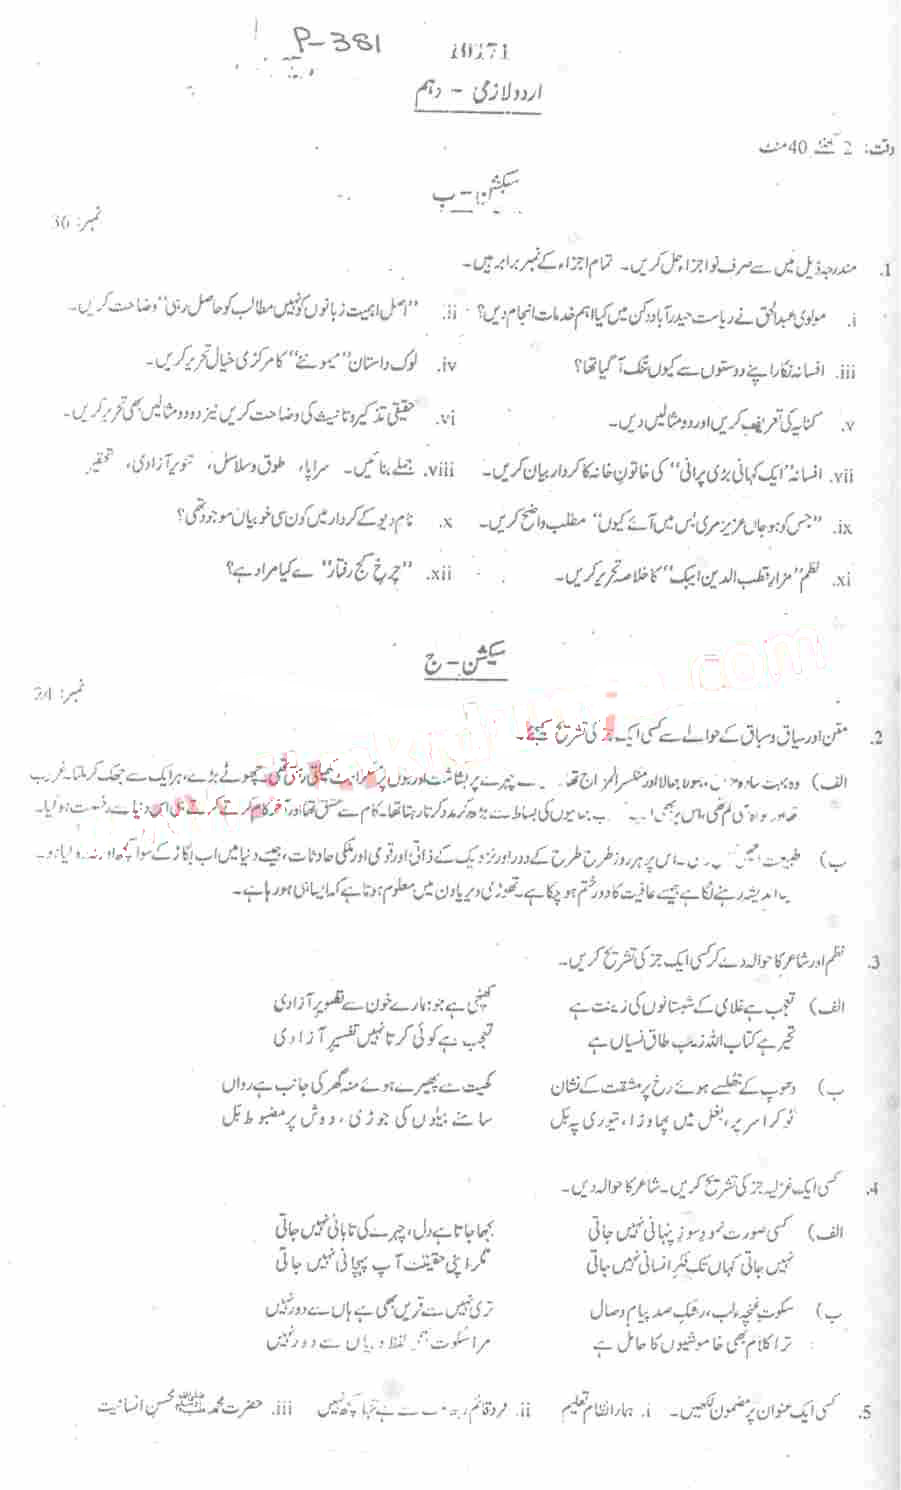 P-381
10171
اردو لازمی - دہم
وقت: 2 گھنٹے 40 منٹ
سیکشن - ب
نمبر: 36
1. مندرجہ ذیل میں سے صرف نو اجزاء حل کریں۔ تمام اجزاء کے نمبر برابر ہیں۔
i. مولوی عبدالحق نے ریاست حیدرآباد دکن میں کیا اہم خدمات انجام دیں؟ ii. "اصل اہمیت زبانوں کو نہیں مطالب کو حاصل رہی" وضاحت کریں۔
iii. افسانہ نگار اپنے دوستوں سے کیوں تنگ آ گیا تھا؟ iv. لوک داستان "میمونئے" کا مرکزی خیال تحریر کریں۔
v. کنایہ کی تعریف کریں اور دو مثالیں دیں۔ vi. حقیقی تذکیر و تانیث کی وضاحت کریں نیز دو دو مثالیں بھی تحریر کریں۔
vii. افسانہ "ایک کہانی بڑی پرانی" کی خاتون خانہ کا کردار بیان کریں۔ viii. جملے بنائیں۔ سراپا، طوق و سلاسل، تنویر آزادی، تحقیر
ix. "جس کو ہو جاں عزیز مری بس میں آئے کیوں" مطلب واضح کریں۔ x. نام دیو کے کردار میں کون سی خوبیاں موجود تھی؟
xi. نظم "مزار قطب الدین ایبک" کا خلاصہ تحریر کریں۔ xii. "چرخ کج رفتار" سے کیا مراد ہے؟
سیکشن - ج
نمبر: 24
2. متن اور سیاق و سباق کے حوالے سے کسی ایک جز کی تشریح کیجئے۔
الف) وہ بہت سادہ بھولا بھالا اور منکسر المزاج تھا۔ چہرے پر بشاشت اور لبوں پر مسکراہٹ کھیلتی رہتی تھی۔ چھوٹے بڑے، ہر ایک سے جھک کر ملتا۔ غریب
تھا اور تنخواہ بھی کم تھی، اس پر بھی بھائیوں کی بساط سے بڑھ کر مدد کرتا رہتا تھا۔ کام سے عشق تھا اور آخر کام کرتے کرتے ہی اس دنیا سے رخصت ہو لیا۔
ب) طبیعت اس پر ہر روز طرح طرح کے دور اور نزدیک کے ذاتی اور قومی اور ملکی حادثات، جیسے دنیا میں اب بگاڑ کے سوا کچھ اور
یہ اندیشہ رہنے لگا ہے جیسے عافیت کا دور ختم ہو چکا ہے۔ تھوڑی دیر یا دن میں معلوم ہوتا ہے کہ ایسا ہی ہو رہا ہے۔
3. نظم اور شاعر کا حوالہ دے کر کسی ایک جز کی تشریح کریں۔
الف) تعجب ہے غلامی کے شبستانوں کی زینت ہے کھنچی ہے جو ہمارے خون سے تصویر آزادی
تحیر ہے کتاب اللہ زیب طاق نسیاں ہے تعجب ہے کوئی کرتا نہیں تفسیر آزادی
ب) دھوپ کے جھلسے ہوئے رخ پر مشقت کے نشان کھیت سے پھیرے ہوئے منہ گھر کی جانب ہے رواں
ٹوکرا سر پر، بغل میں پھاوڑا، تیوری پہ بل سامنے بیلوں کی جوڑی، دوش پر مضبوط ہل
4. کسی ایک غزلیہ جز کی تشریح کریں۔ شاعر کا حوالہ دیں۔
الف) کسی صورت نمود سوز پنہانی نہیں جاتی بجھا جاتا ہے دل، چہرے کی تابانی نہیں جاتی
نہیں جاتی کہاں تک فکر انسانی نہیں جاتی مگر اپنی حقیقت آپ پہچانی نہیں جاتی
ب) سکوت غنچہ لب، رشک صد پیام وصال تری نہیں سے قریں بھی ہے ہاں سے دور نہیں
ترا کلام بھی خاموشیوں کا حامل ہے مرا سکوت بھی لفظ و بیاں سے دور نہیں
5. کسی ایک عنوان پر مضمون لکھیں۔ i. ہمارا نظام تعلیم ii. فرد قائم ربط ملت سے ہے تنہا کچھ نہیں iii. حضرت محمد ﷺ محسن انسانیت